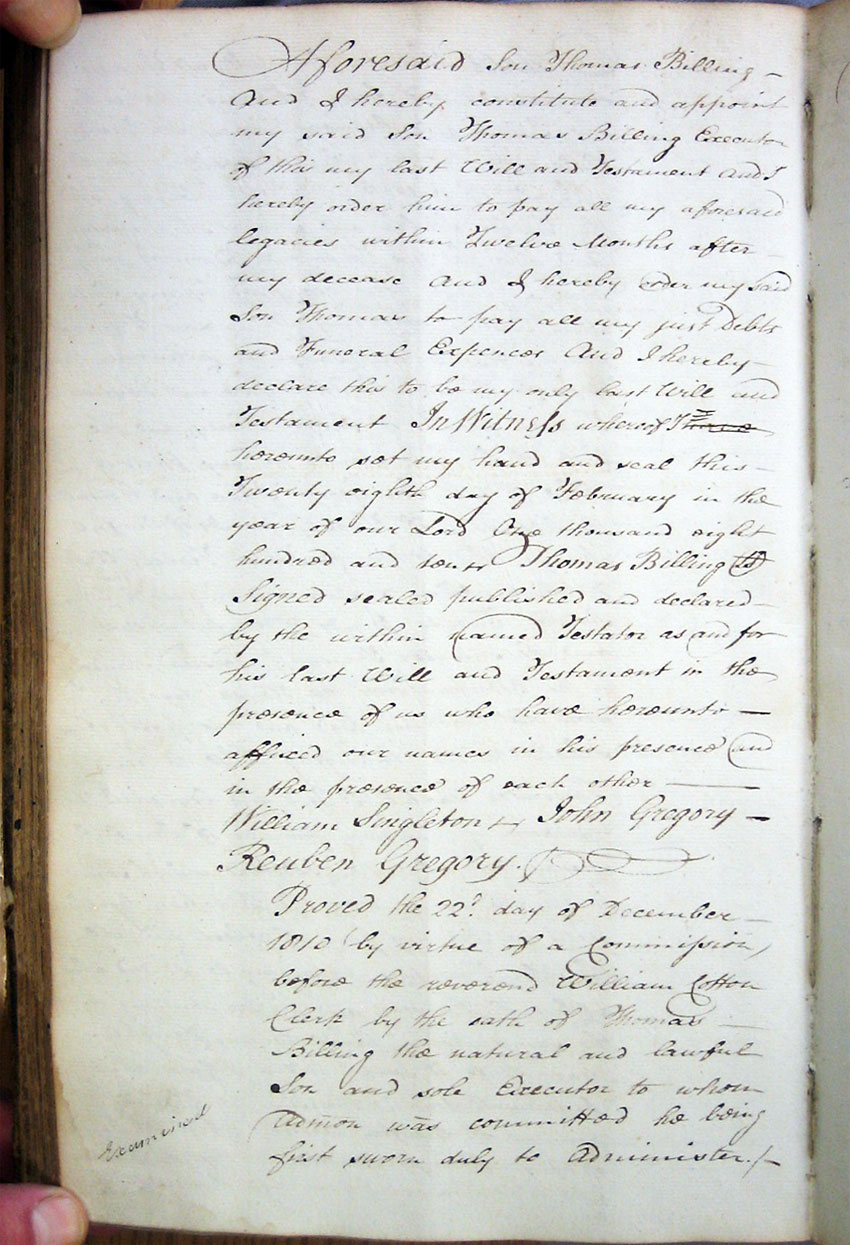 Aforesaid Son Thomas Billing –
And I hereby constitute and appoint
my said Son Thomas Billing Executor
of this my last Will and Testament And I
hereby order him to pay all my aforesaid
legacies within Twelve Months after –
my decease And I hereby order my said
Son Thomas to pay all my just Debts
and Funeral Expences And I hereby –
declare this to be my only last Will and
Testament In Witness whereof I
hereunto set my hand and seal this –
Twenty eighth day of February in the
year of our Lord One thousand eight
hundred and ten Thomas Billing (LS)
Signed sealed published and declared –
by the within named Testator as and for
his last Will and Testament in the
presence of us who have hereunto –
affixed our names in his presence and
in the presence of each other –
William Singleton John Gregory –
Reuben Gregory.
Proved the 22d. day of December –
1810 by virtue of a Commission,
before the reverend William Cotton
Clerk by the oath of Thomas –
Billing the natural and lawful
Son and sole Executor to whom
Admon was committed he being
first sworn duly to Administer./–
Examined